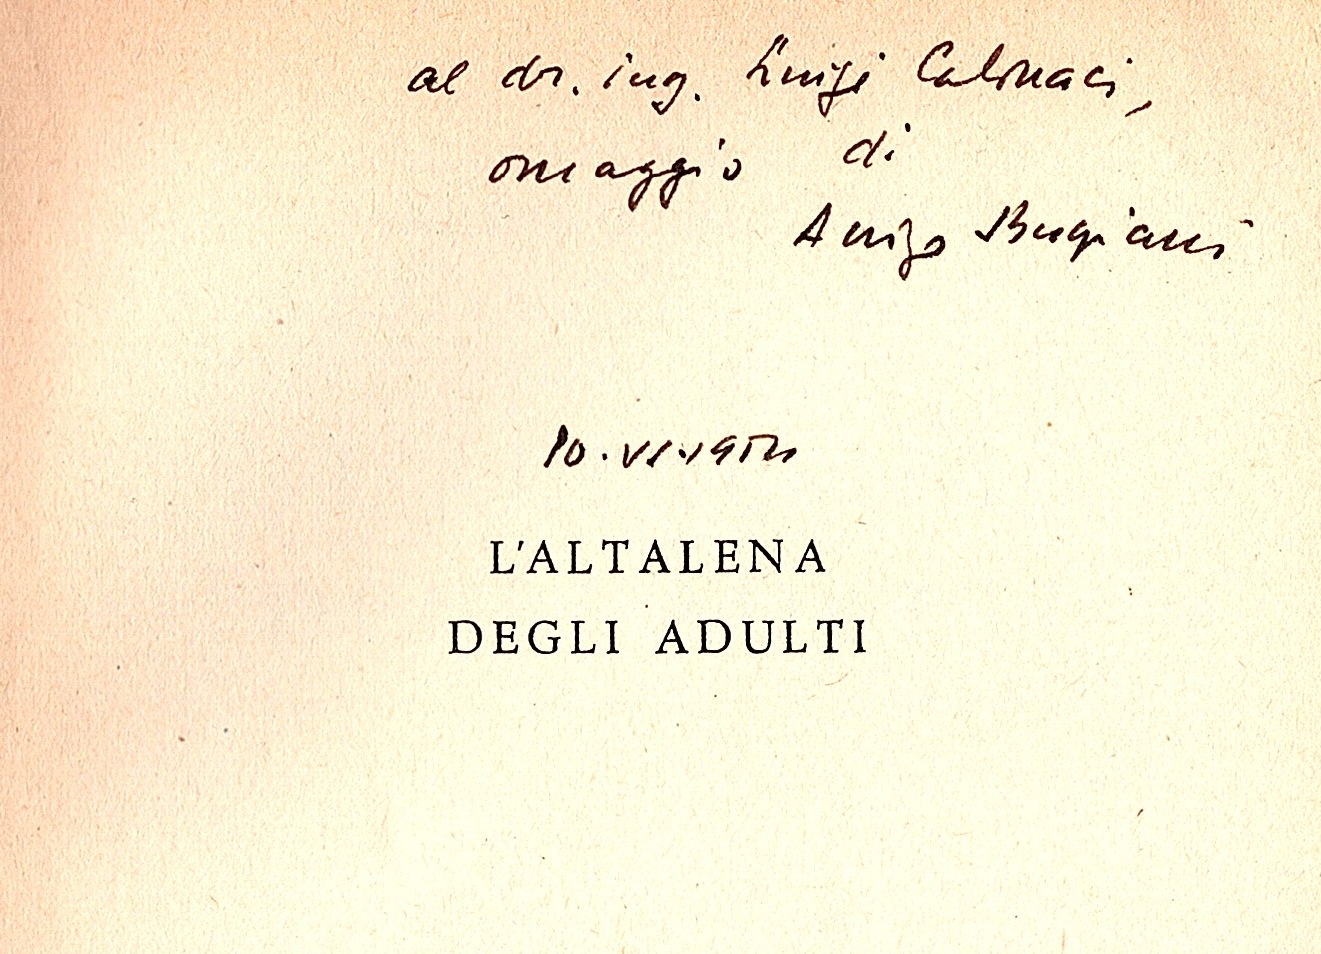 al dr. ing. Luigi Calonaci,
omaggio di
Arrigo Bugiani
10.VI.1954
L'ALTALENA
DEGLI ADULTI